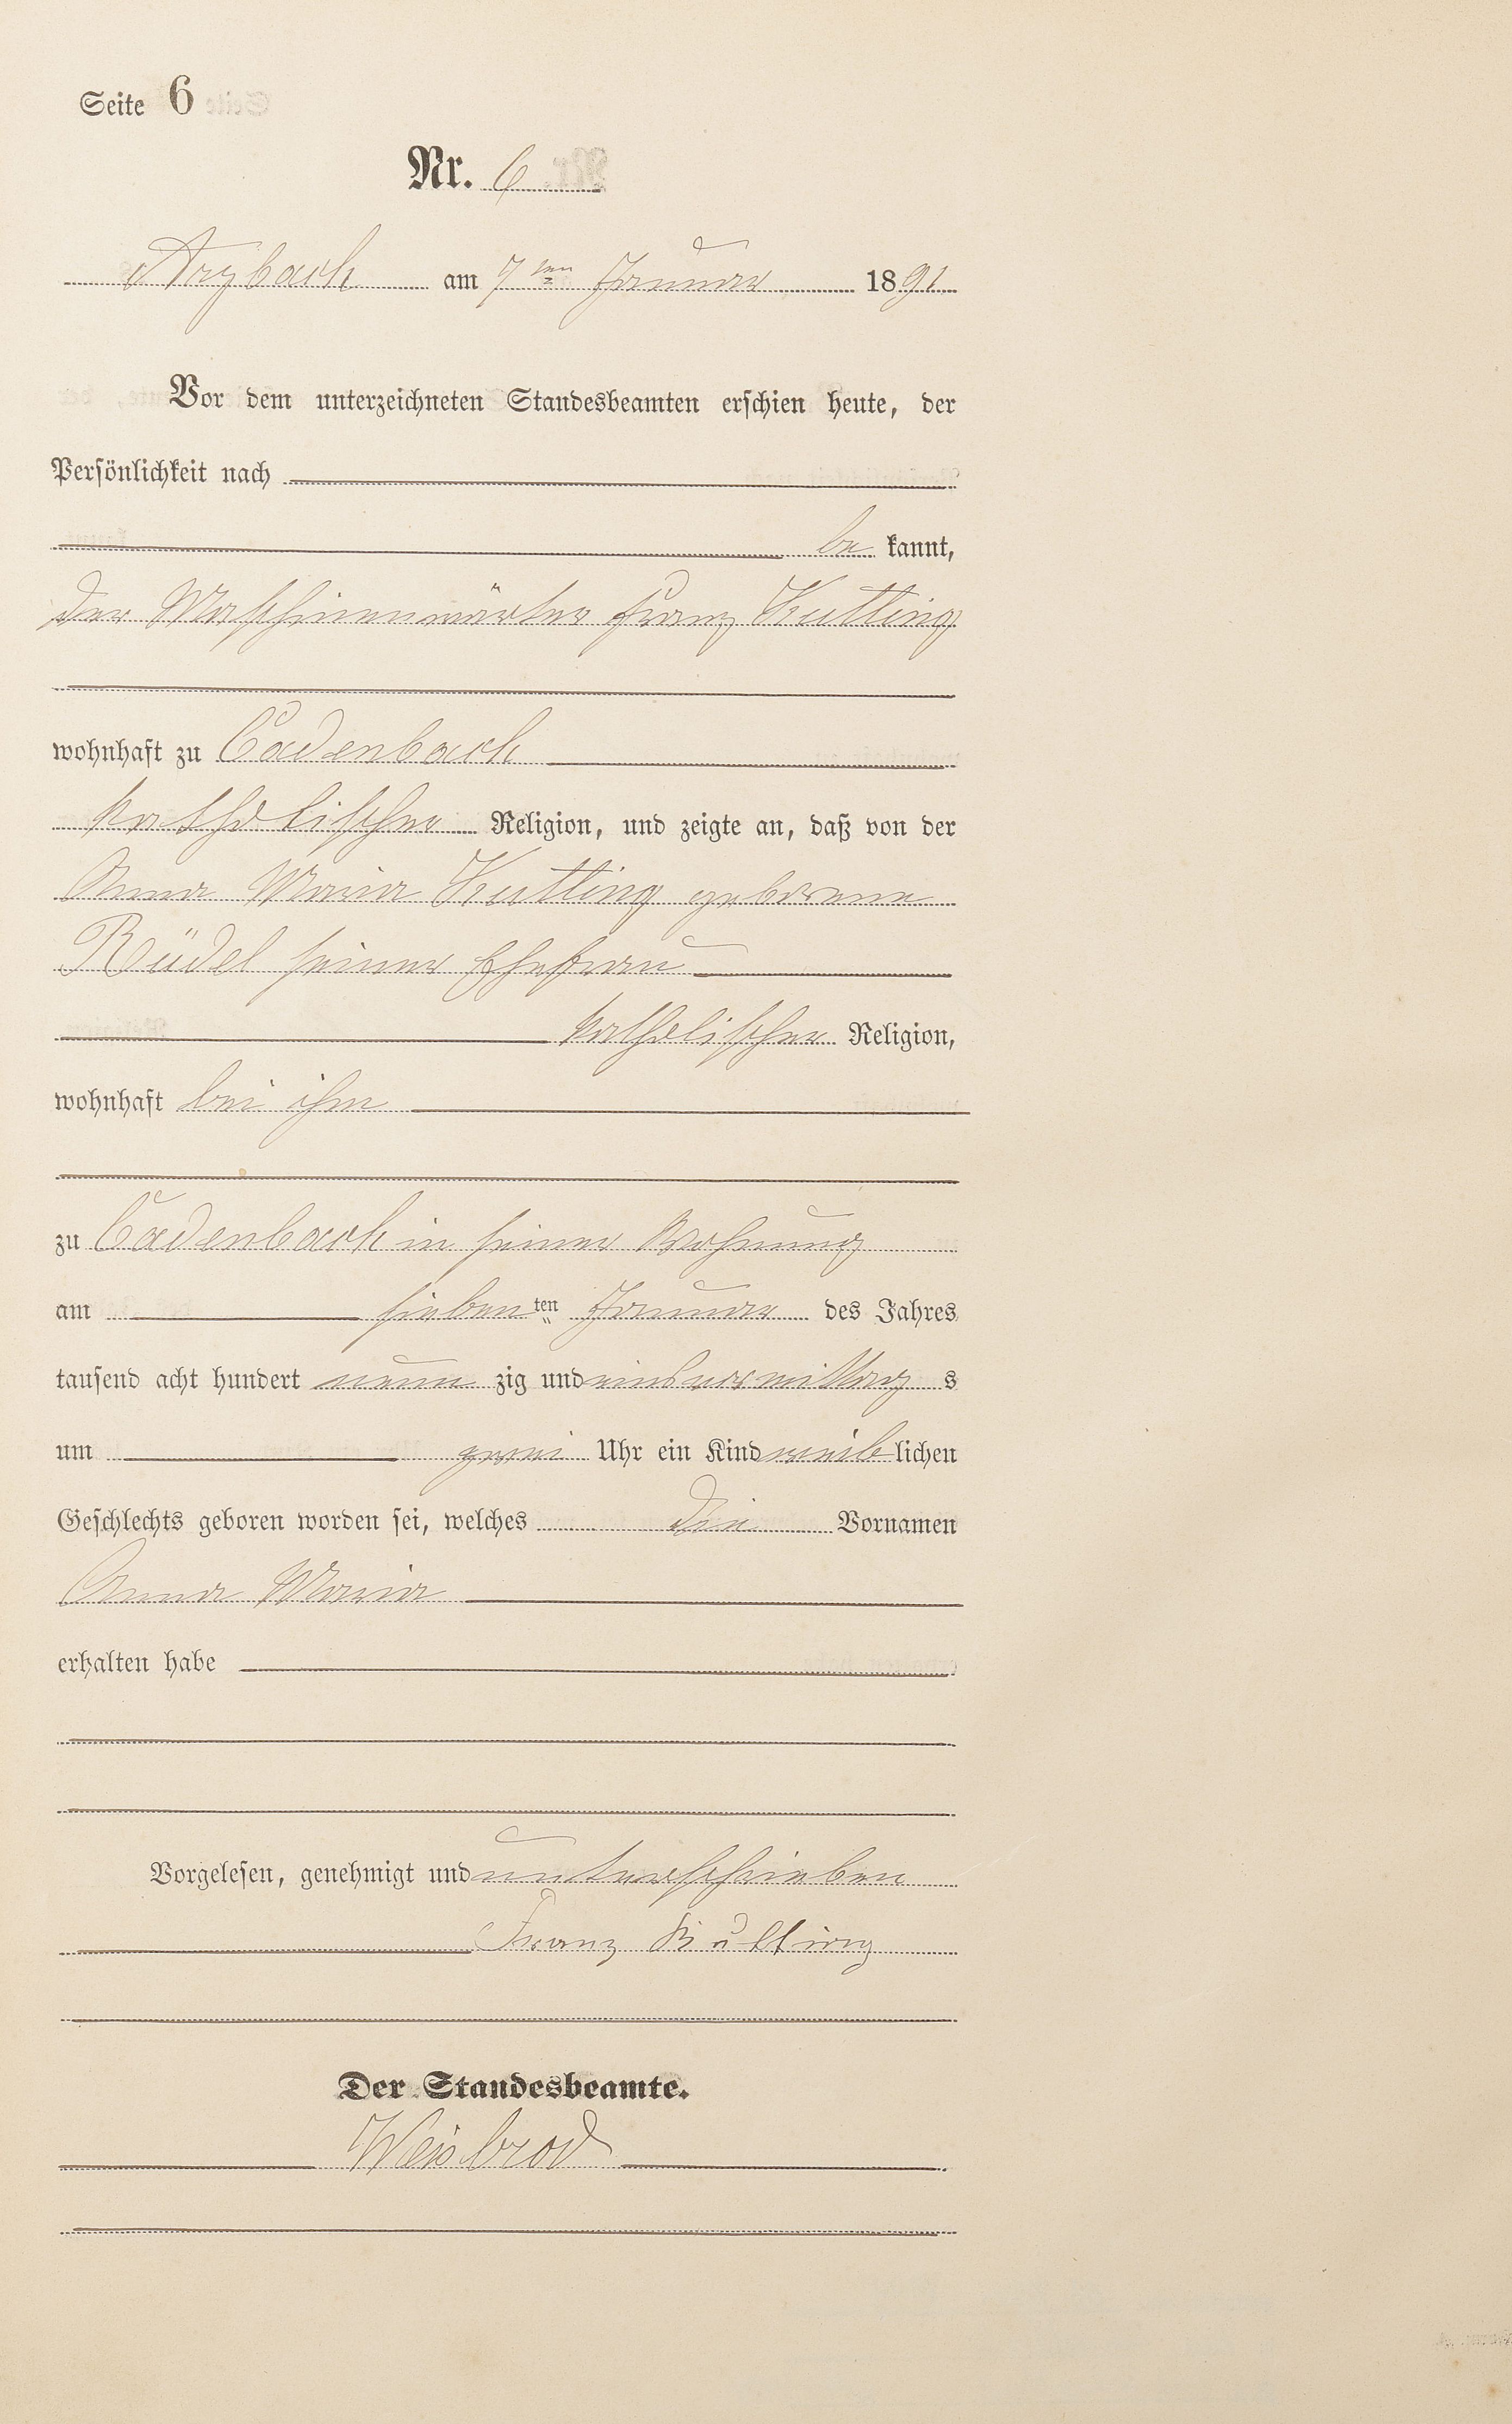 Seite 6
Nr. 6
Arzbach am 7ten Januar 1891
Vor dem unterzeichneten Standesbeamten erschien heute, der
Persönlichkeit nach
be kannt,
der Maschinenwärter Franz Kutting
wohnhaft zu Cadenbach
katholischer Religion, und zeigte an, daß von der
Anna Maria Kutting geborene
Rüdel seiner Ehefrau
katholischer Religion,
wohnhaft bei ihm
zu Cadenbach in seiner Wohnung
am siebenten Januar des Jahres
tausend acht hundert neun zig und eins vormittag s
um zwei Uhr ein Kind weib lichen
Geschlechts geboren worden sei, welches die Vornamen
Anna Maria
erhalten habe
Vorgelesen, genehmigt und unterschrieben
Franz Kutting
Der Standesbeamte.
Weisbrod